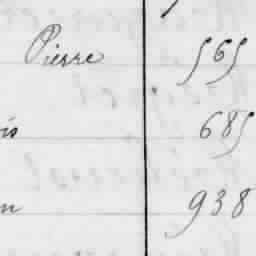 Pierre 565
is 685
n 938